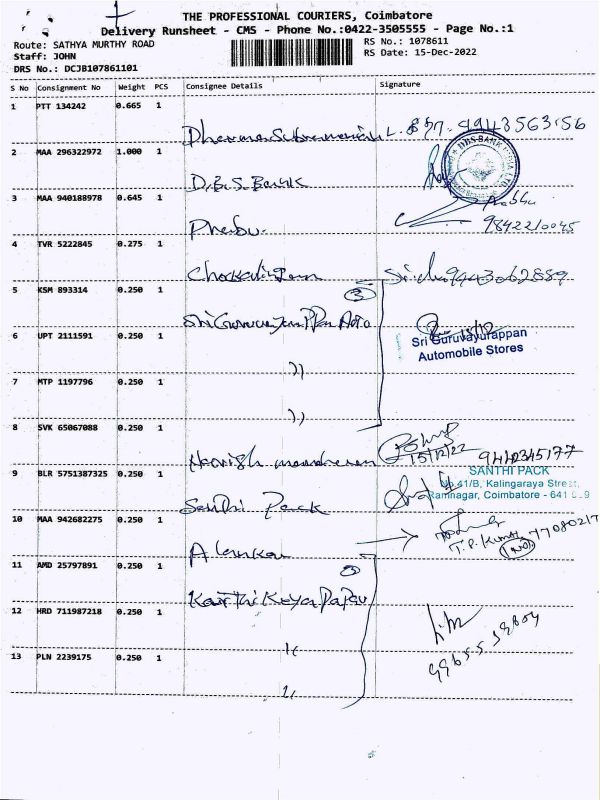 THE PROFESSIONAL COURIERS, Coimbatore
Delivery Runsheet - CMS - Phone No.:0422-3505555 - Page No.:1
Route: SATHYA MURTHY ROAD
RS No.: 1078611
Staff: JOHN
RS Date: 15-Dec-2022
DRS No.: DCJB107861101
S No Consignment No Weight PCS Consignee Details Signature
1 PTT 134242 0.665 1
L. 9943563156
2 MAA 296322972 1.000 1
D.B.S. Bank
DBS BANK
3 MAA 940188978 0.645 1
Prabhu
9842210045
4 TVR 5222845 0.275 1
Chockalingam 9443062889
5 KSM 893314 0.250 1
3
Sri Guruvayurappan Auto
6 UPT 2111591 0.250 1
15/12
Sri Guruvayurappan
Automobile Stores
"
7 MTP 1197796 0.250 1
"
8 SVK 65067088 0.250 1
15/12/22
Harish
9 BLR 5751387325 0.250 1
SANTHI PACK
No.41/B, Kalingaraya Street,
Ramnagar, Coimbatore - 641
Santhi Pack
10 MAA 942682275 0.250 1
T.P. Kumar
Alankar
11 AMD 25797891 0.250 1
3
Karthikeya
12 HRD 711987218 0.250 1
"
13 PLN 2239175 0.250 1
"